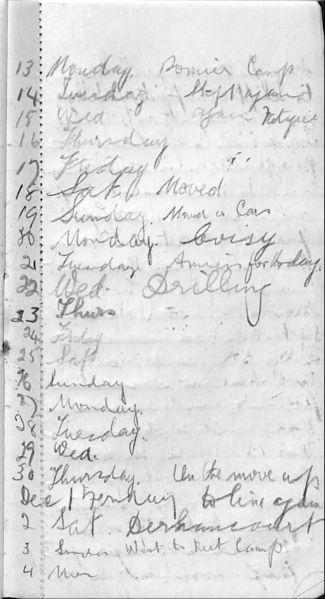 13 Monday Camp
14 Tuesday
15 Wed again Fatigue
16 Thursday
17 Friday
18 Sat. Moved
19 Sunday Moved in Cars
20 Monday.
21 Tuesday for the day.
22 Wed. Drilling
23 Thurs
24 Friday
25 Sat
26 Sunday
27 Monday.
28 Tuesday.
29 Wed.
30 Thursday. On the move up
Dec 1 to line again
2 Sat. Derhancourt
3 Sunday Went to Rest Camp
4 Mon